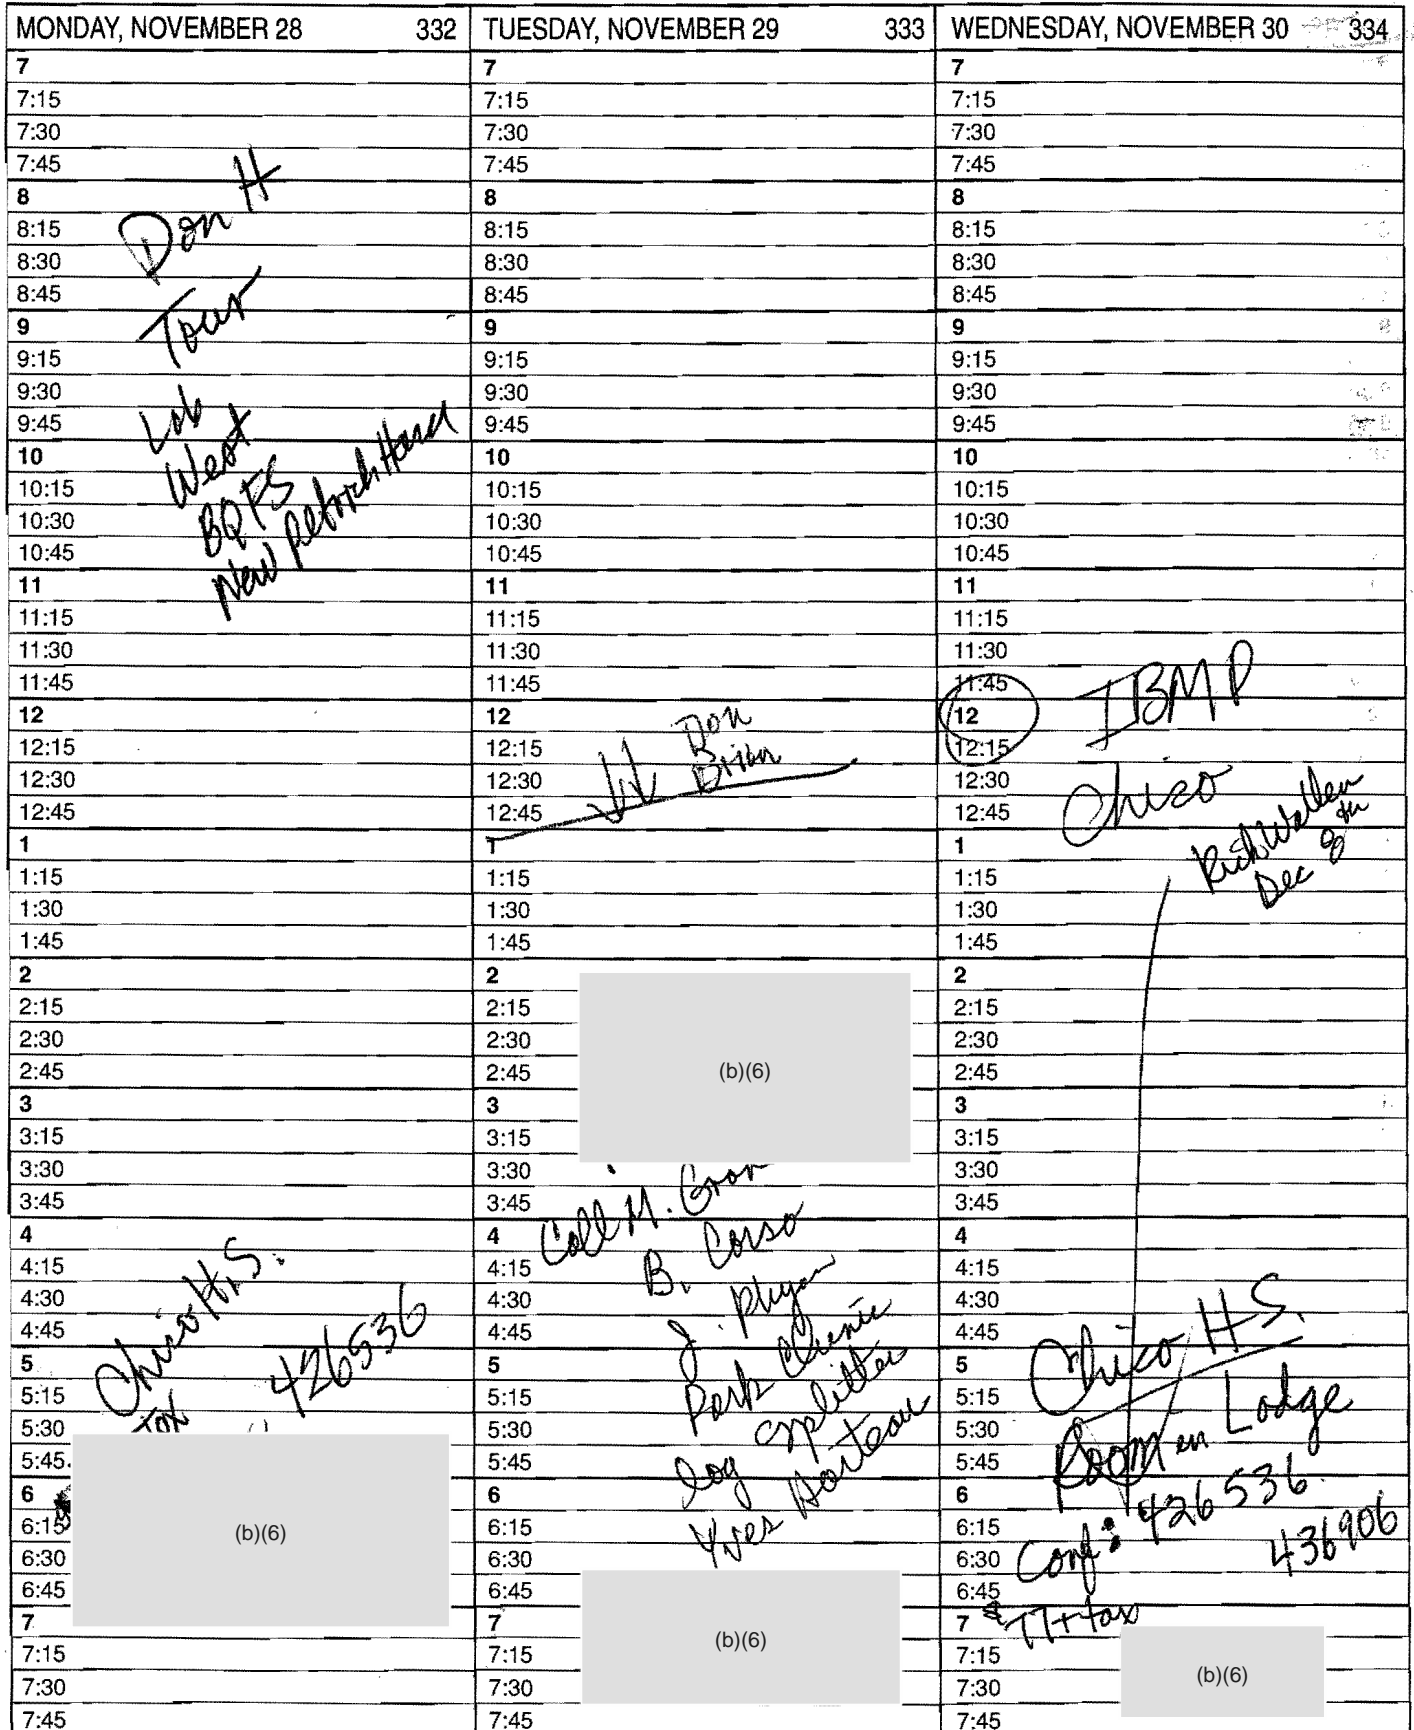 MONDAY, NOVEMBER 28 332
7
7:15
7:30
7:45
8
8:15
8:30
8:45
9
9:15
9:30
9:45
10
10:15
10:30
10:45
11
11:15
11:30
11:45
12
12:15
12:30
12:45
1
1:15
1:30
1:45
2
2:15
2:30
2:45
3
3:15
3:30
3:45
4
4:15
4:30
4:45
5
5:15
5:30
5:45
6
6:15
6:30
6:45
7
7:15
7:30
7:45
Don H
Tour
Lab
West
BQFS
New
Chico H.S.
426536
(b)(6)
TUESDAY, NOVEMBER 29 333
7
7:15
7:30
7:45
8
8:15
8:30
8:45
9
9:15
9:30
9:45
10
10:15
10:30
10:45
11
11:15
11:30
11:45
12
12:15
12:30
12:45
1
1:15
1:30
1:45
2
2:15
2:30
2:45
3
3:15
3:30
3:45
4
4:15
4:30
4:45
5
5:15
5:30
5:45
6
6:15
6:30
6:45
7
7:15
7:30
7:45
Don
Brian
(b)(6)
Call M.
B. Corso
J.
Park
log splitter
Yves
(b)(6)
WEDNESDAY, NOVEMBER 30 334
7
7:15
7:30
7:45
8
8:15
8:30
8:45
9
9:15
9:30
9:45
10
10:15
10:30
10:45
11
11:15
11:30
11:45
12
12:15
12:30
12:45
1
1:15
1:30
1:45
2
2:15
2:30
2:45
3
3:15
3:30
3:45
4
4:15
4:30
4:45
5
5:15
5:30
5:45
6
6:15
6:30
6:45
7
7:15
7:30
7:45
IBMP
Chico
Rick Wallen
Dec 8th
Chico H.S.
Room in Lodge
Conf: 426536
436906
77+tax
(b)(6)